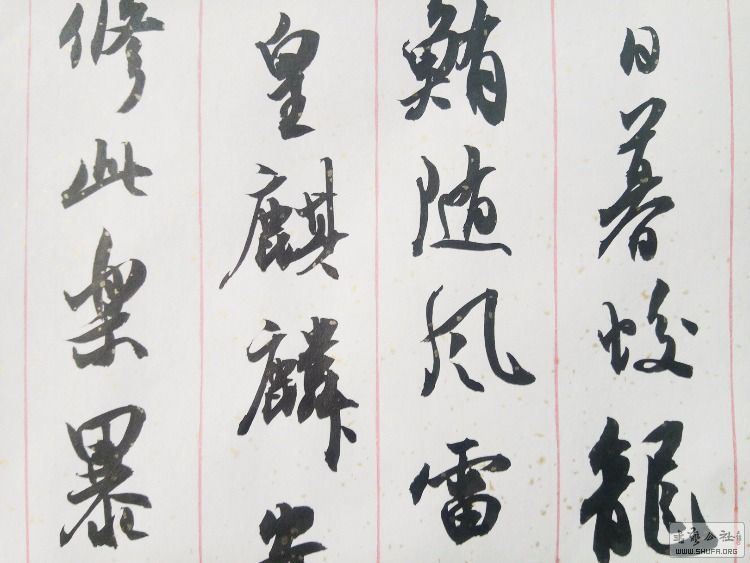 日暮蛟龍
鮪随风雷
皇麒麟安
修此桀暴
书法公社
WWW.SHUFA.ORG